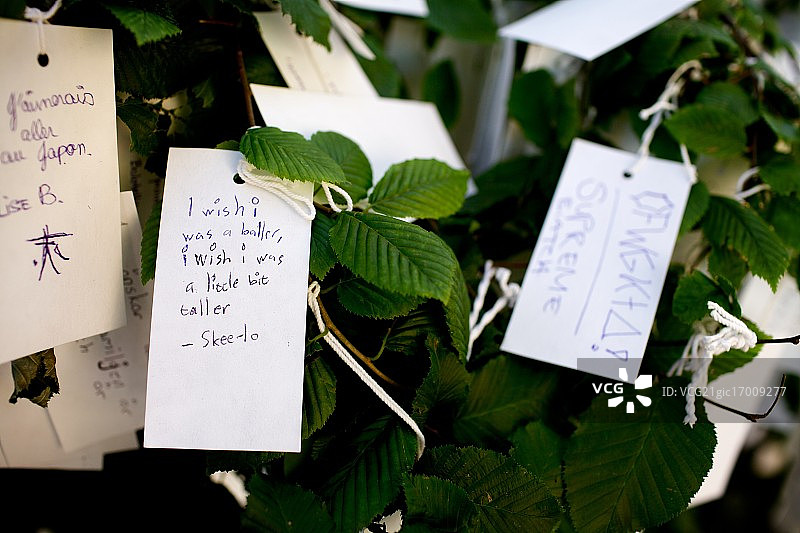 J'aimerais
aller
au Japon.
Lise B.
I wish i
was a baller,
i wish i was
a little bit
taller
- Skee-lo
OFWGKTA
SUPREME
BITCH
VCG
VCG
ID: VCG21gic17009277